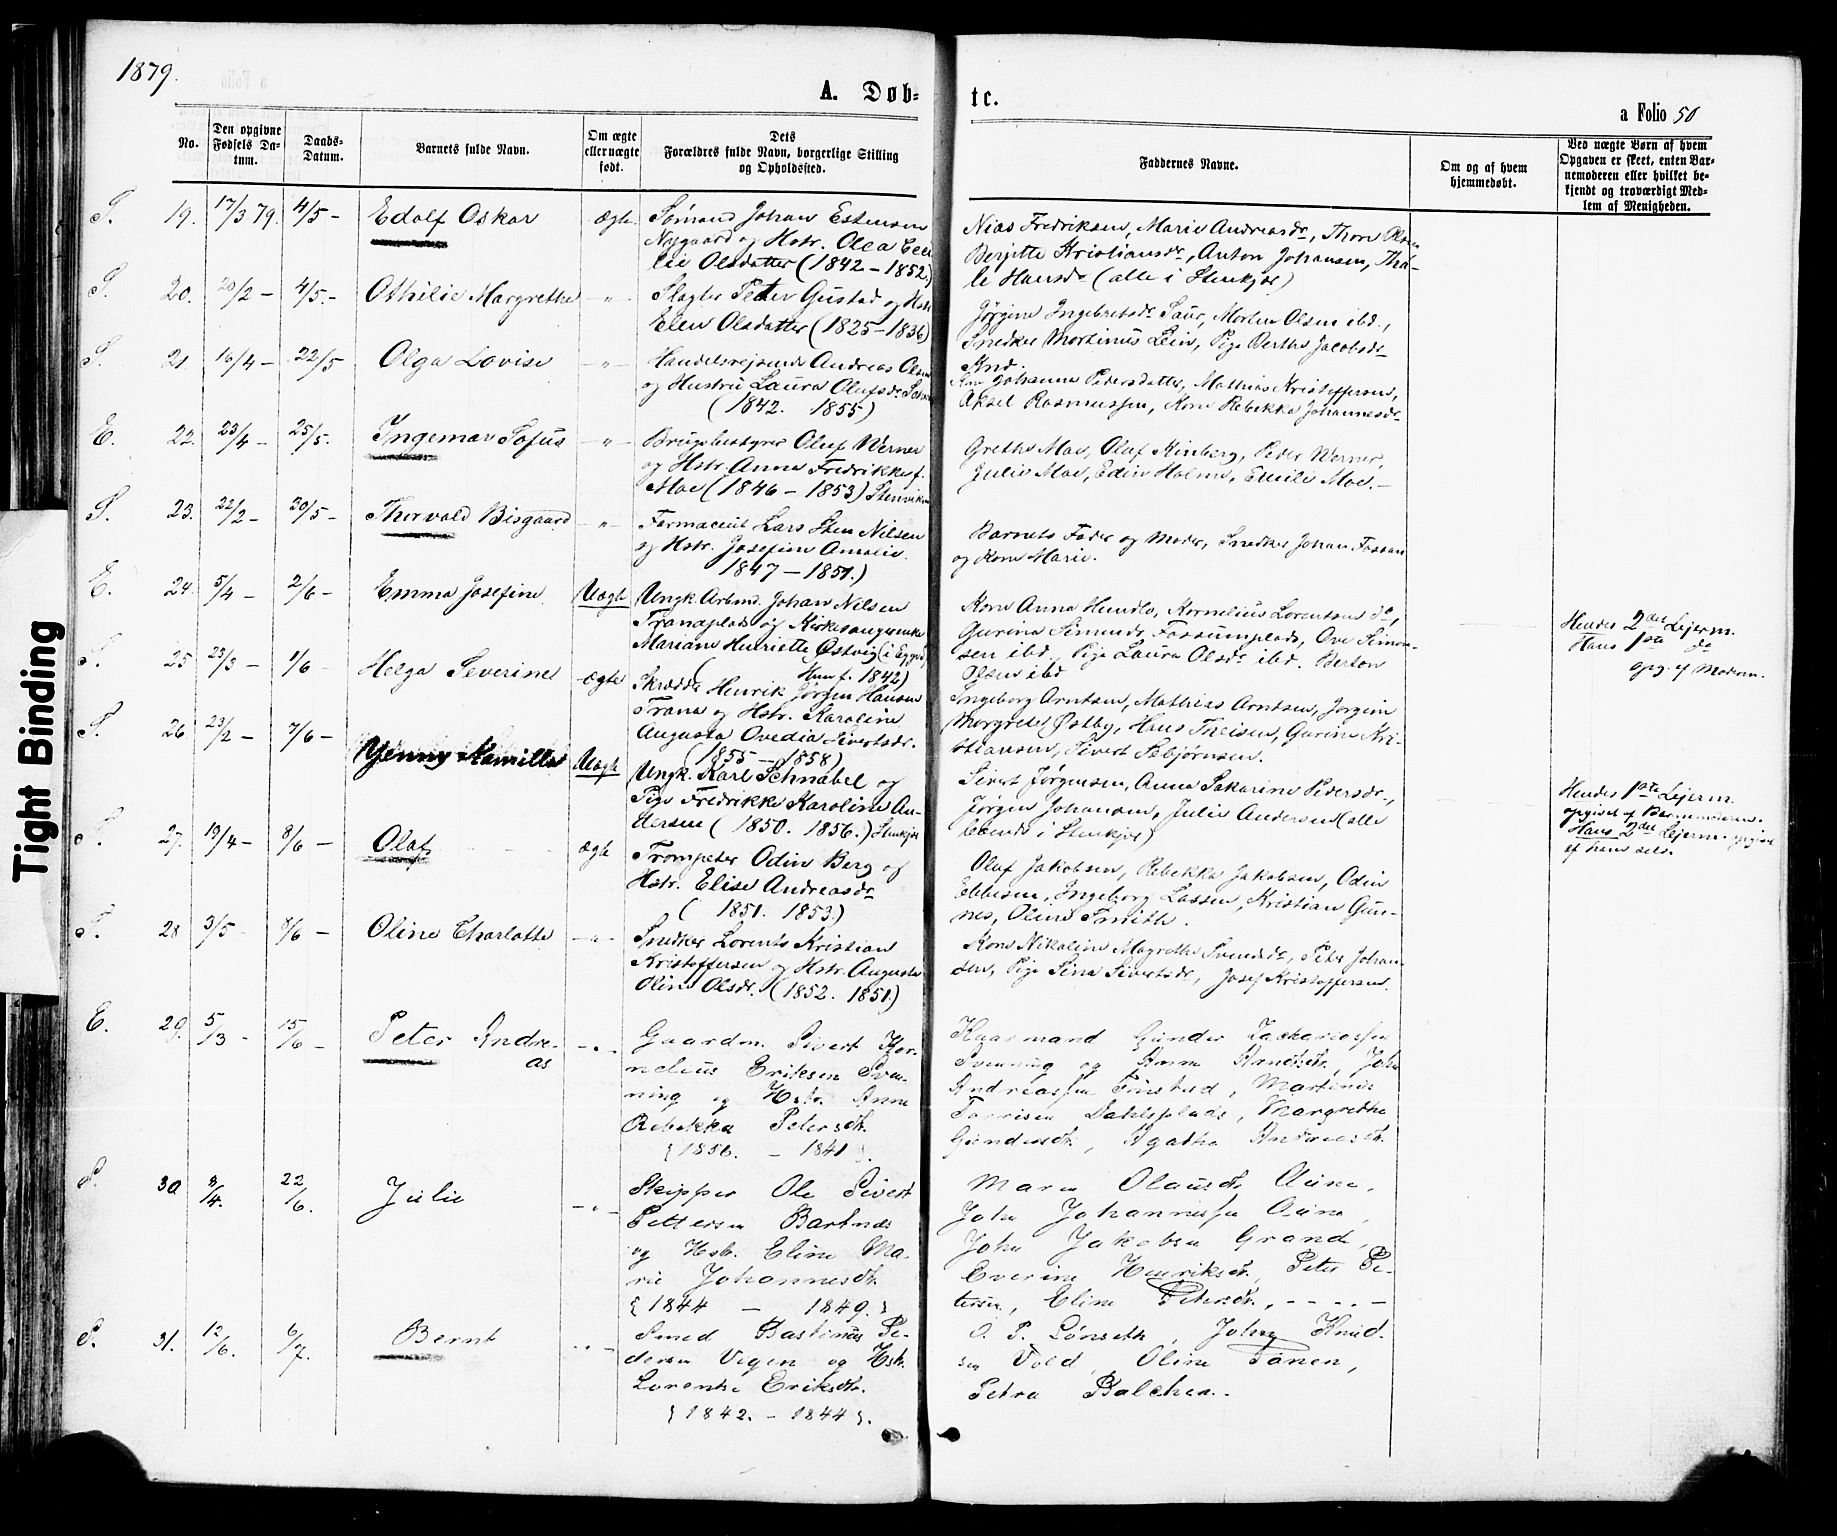 1879.
A. Døb-
te.
a Folio 50
No.
Den opgivne Fødsels Da-tum.
Daabs-Datum.
Barnets fulde Navn.
Om ægte eller uægte født.
Dets Forældres fulde Navn, borgerlige Stilling og Opholdssted.
Faddernes Navne.
Om og af hvem hjemmedøbt.
Ved uægte Børn af hvem Opgaven er skeet, enten Barnemoderen eller hvilket bekjendt og troværdigt Medlem af Menigheden.
S. 19. 17/3 79. 4/5 - Edolf Oskar ægte
Sømand Johan Estensen
Nygaard og Hstr. Olea Ceci
lie Olsdatter (1842 - 1852.)
Nias Fredriksen, Marie Andreasdr, Thore Olsen
Berjitte Kristiansdr, Anton Johansen, Tha-
le Hansdr (alle i Stenkjær)
S. 20. 20/2 - 4/5. - Othilie Margrethe - " -
Slagter Peter Gustad og Hstr
Elen Olsdatter (1825 - 1836)
Jørgine Ingebretsdr Saur, Morten Olsen ibd.,
Snedker Mortinus Lein, Pige Berthe Jacobsdr
ibid.
S. 21. 16/4 - 22/5 Olga Lovise - " -
Handelsrejsende Andreas Olsen
og Hustru Laura Olufsdr
(1842. 1855)
Kone Johanna Pedersdatter, Mathias Kristoffersen,
Aksel Rasmussen, Kone Rebekka Johannesdr
E. 22. 23/4 - 25/5. Ingemar Sofus - " -
Brugsbestyrer Oluf Werner
og Hstr. Anna Fredrikke f.
Moe (1846 - 1853)
Grethe Moe, Oluf Kinberg, Peder Werner,
Julie Moe, Edin Holme, Emilie Moe. -
S. 23. 22/2 - 30/5 - Thorvald Bisgaard - " -
Farmaceut Lars Sten Nilsen
og Hstr. Josefine Amalie.
1847 - 1851.)
Barnets Fader og Moder, Snedker Johan Fossum
og Kone Marie.
E. 24. 5/4 - 2/6 - Emma Josefine. Uægte
Ungk. Arbmd. Johan Nilsen
Tranaplads og Kirkesangerenke
Mariane Henriette Østvig (i Egge)
( Hun f. 1842)
Kone Anna Hendlo, Kornelius Lorentsen do,
Gurina Simunds. Fossumplads, Ove Simon-
sen ibd., Pige Laura Olsdr ibd. Berton
Olsen ibd
Hendes 2den Lejerm.
Hans 1ste do
opg. af Moderen.
S. 25 23/3 - 1/6 - Helga Severine ægte
Skrædder Henrik Jørgen Hansen
Trana og Hstr. Karoline
Augusta Ovedia Sivertsdr.
(1855 - 1858)
Ingeborg Arntsen, Mathias Arntsen, Jørgine
Margrete Østby, Hans Theisen, Gurine Kri-
stiansen, Sivert Sebjørnsen.
S. 26 23/2 - 7/6 - Jenny Kamilla Uægte
Ungk. Karl Schnabel og
Pige Fredrikke Karoline An-
dersen (1850. 1856.) Stenkjær
Sivert Jørgensen, Anna Sakarine Pedersdr,
Jørgen Johansen, Julie Andersen (alle
boende i Stenkjær)
Hendes 1ste Lejerm.
opgivet af Barnemoderen.
Hans 2den Lejerm. opgivet
af ham selv.
S. 27. 19/4 - 8/6 - Olaf ægte
Trompeter Odin Berg og
Hstr. Elise Andreasdr
(1851. 1853.)
Oluf Jakobsen, Rebekka Jakobsen, Odin
Ebbesen, Ingeborg Lassen, Kristian Gun-
nes, Oline Smith.
S. 28 3/5 - 8/6 - Oline Charlotte - " -
Snedker Lorents Kristian
Kristoffersen og Hstr. Augusta
Oline Olsdr. (1852. 1851.)
Kone Nikoline Magrethe Svendsdr, Peter Johan-
sen, Pige Sina Sivertsdr, Josef Kristoffersen.
E. 29. 5/3 - 15/6 - Peter Andre-
as - " -
Gaardm. Sivert Kor-
nelius Eriksen Sven-
ning og Hstr. Anne
Rebekka Petersdtr.
{1856. - 1841}.
Kaarmand Gunder Zachariassen
Svenning og Anne Arntsdtr, John
Andreassen Finstad, Martinus
Tørrisen Dahlsplads, Margretha
Gundersdtr, Agatha Andreasdtr.
S. 30. 8/4. 22/6. Julie - " -
Skipper Ole Sivert
Pettersen Bartnæs
og Hstr. Eline Ma-
rie Johannesdtr.
{1844 - 1849.}
Maren Olausdtr Aune,
John Johannessen Aune,
John Jakobsen Grand,
Everine Henriksdtr, Peter Pe-
tersen, Eline Petersdtr.
S. 31. 12/6. 6/7. Bernt - " -
Smed Bastinus Pe-
dersen Vegen og Hstr.
Lorentse Eriksdtr.
{1842. - 1844}.
O. P. Lønseth, John Knud-
sen Vold, Oline Tanem,
Petra Balchen.
Tight Binding